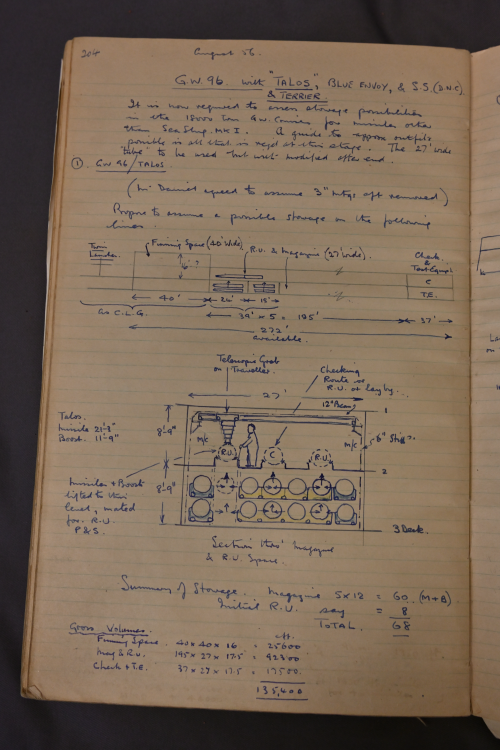 204
August 56.
G.W. 96. with "TALOS", BLUE ENVOY, & S.S. (D.N.C)
& TERRIER
It is now required to assess stowage possibilities
in the 18000 ton G.W. Cruiser for missiles other
than Sea Slug Mk I. A guide to approx outfits
possible is all that is reqd at this stage. The 27' wide
'tube' to be used but with modified after end.
① GW 96/TALOS.
(Mr Daniel agreed to assume 3" mtgs aft removed)
Propose to assume a possible stowage on the following
lines.
Twin
Launcher
Finning Space (40' wide)
R.U. & Magazine (27' wide).
Check
& Test Equipt
C
T.E.
16'?
40'
24'
15'
As C.L.G.
39' x 5 = 195'
37'
272'
available.
Telescopic Grab
on Traveller.
Checking
Route or
R.U. at lay by.
27'
12" Beam
Talos.
Missile 21'-8"
Boost. 11'-9"
8'-9"
M/C
R.U.
C
R.U.
M/C
6" Stiffrs.
1
2
Missiles + Boost
lifted to this
level, mated
for R.U.
P & S.
8'-9"
3 Deck.
Section thro' magazine
& R.U. Space.
Summary of Stowage. Magazine 5 x 12 = 60 (M+B)
Initial R.U. say = 8
TOTAL. 68
Gross Volumes.
cft.
Finning Space. 40 x 40 x 16 = 25600
Mag & R.U. 195 x 27 x 17.5 = 92300
Check & T.E. 37 x 27 x 17.5 = 17500
135,400